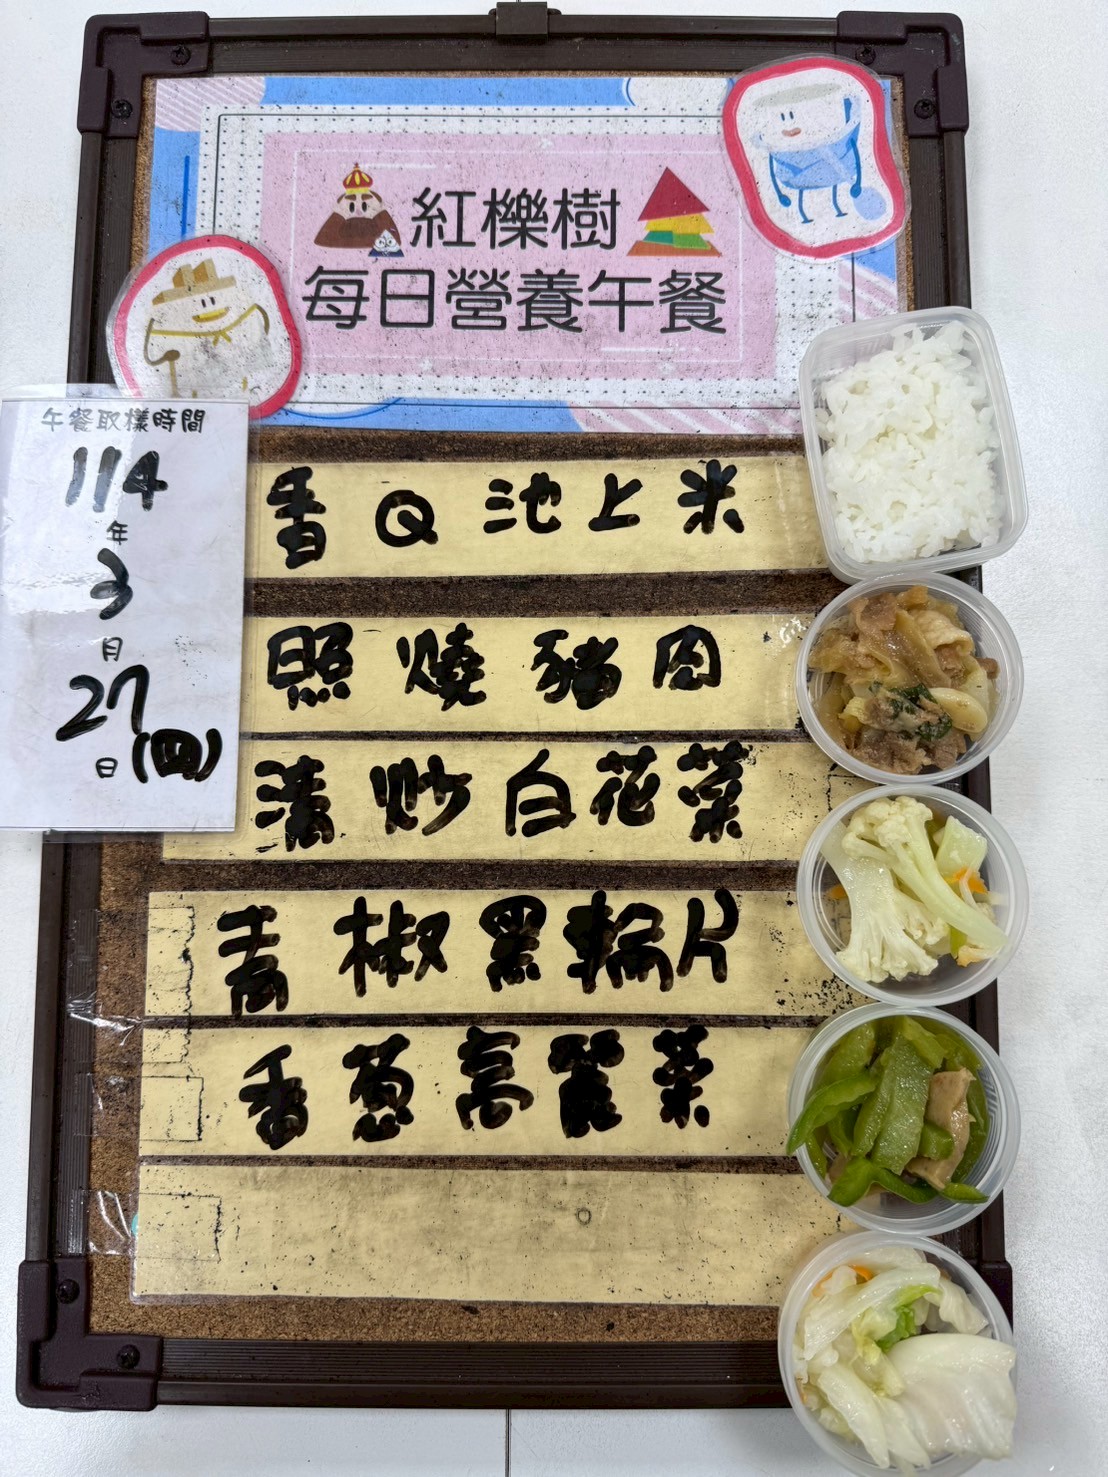 紅櫟樹
每日營養午餐
午餐取樣時間
114
年
3
月
27
日(四)
香Q池上米
照燒豬肉
清炒白花菜
青椒黑輪片
香蔥高麗菜